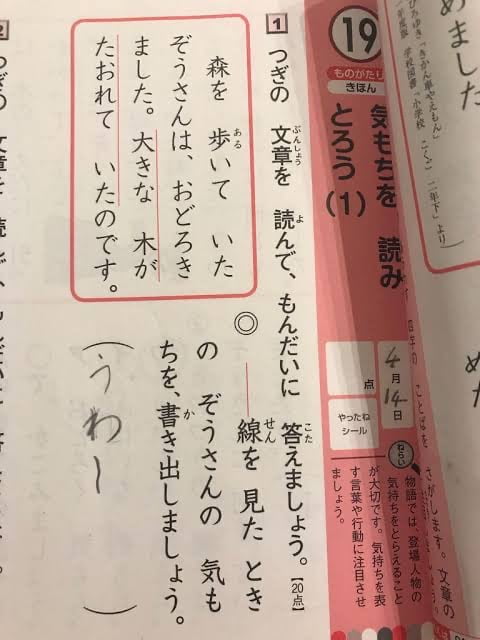 めました
ひろゆき「きかん車やえもん」
学校図書「小学校 こくご 二年下」より
19
ものがたり
きほん
気もちを 読み
とろう(1)
4月14日
点
やったね
シール
ねらい
物語では、登場人物の
気持ちをとらえること
が大切です。気持ちを表
す言葉や行動に注目させ
ましょう。
ことばを さがします。文章の
1 つぎの 文章を 読んで、もんだいに 答えましょう。【20点】
ぶんしょう
よ
こた
森を 歩いて いた
ある
ぞうさんは、おどろき
ました。大きな 木が
たおれて いたのです。
◎
線を 見た とき
せん
の ぞうさんの 気も
ちを、書き出しましょう。
か
(うわー)
2
つぎの 文章を